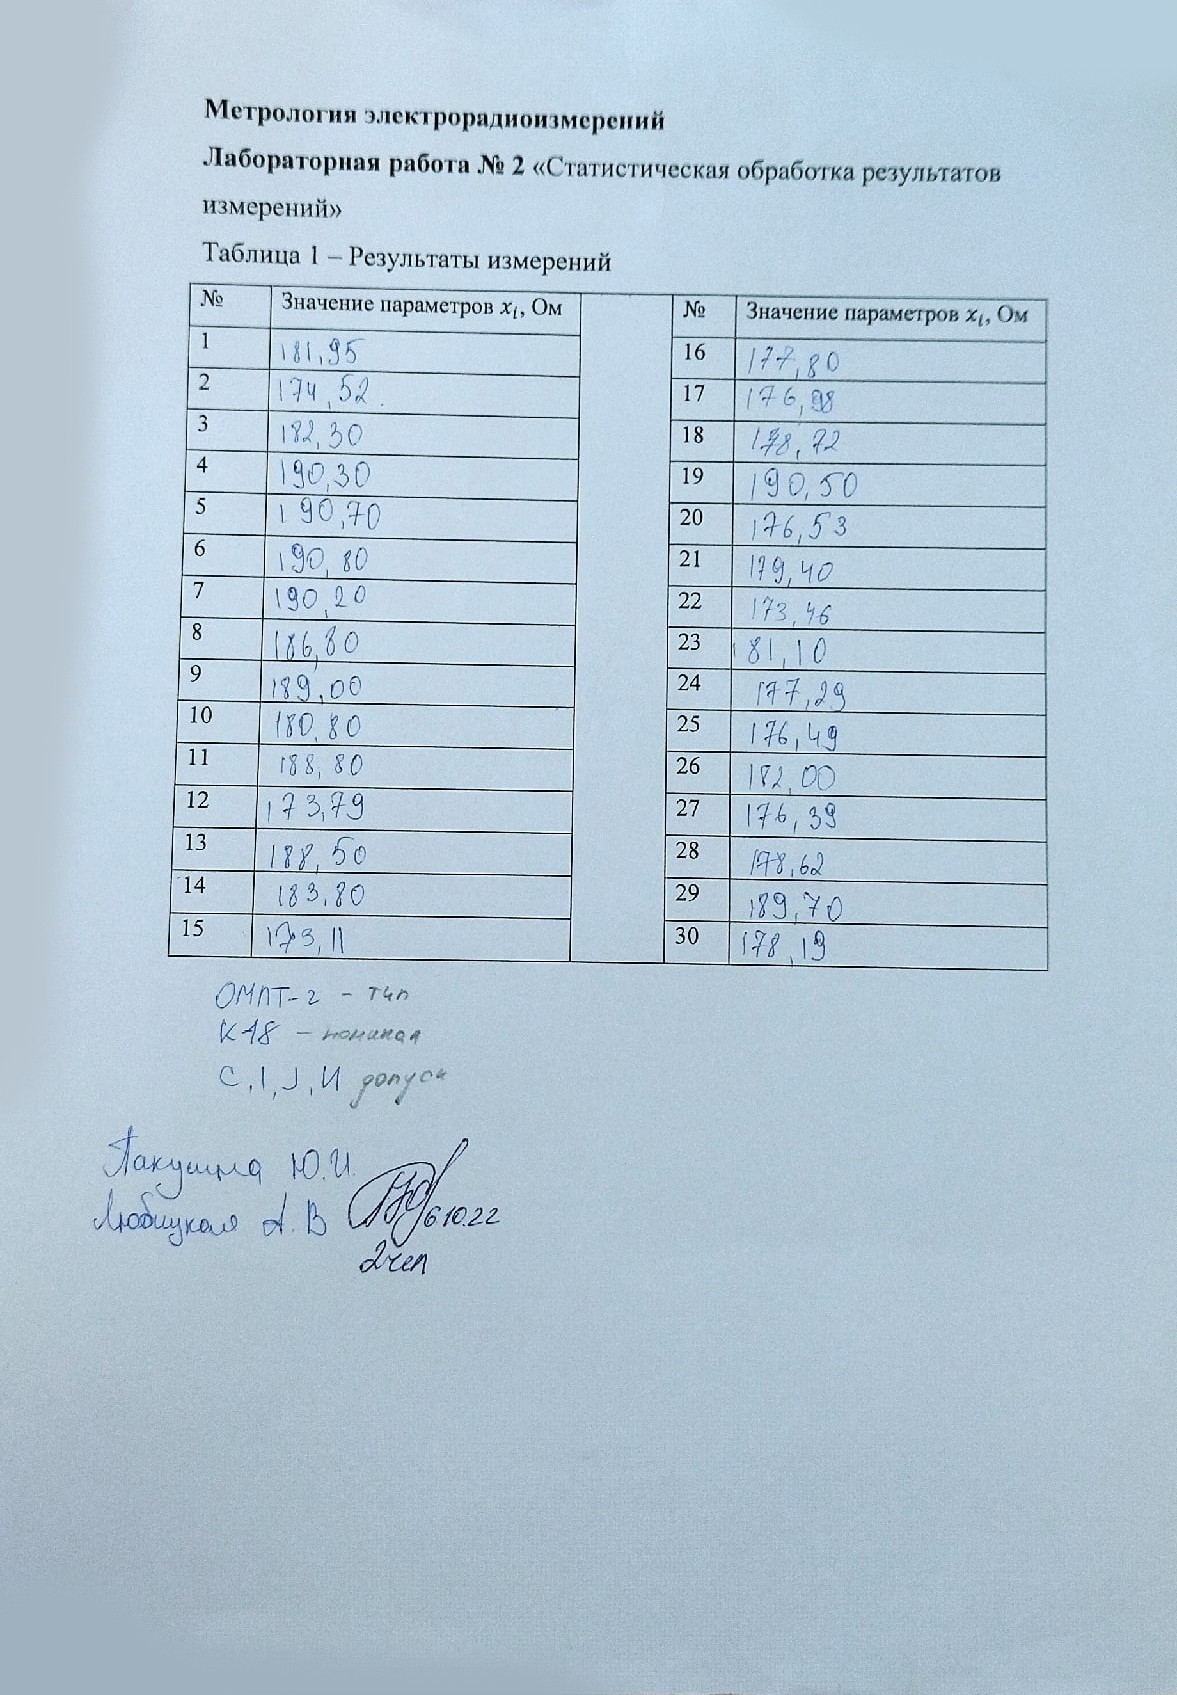 Метрология электрорадиоизмерений
Лабораторная работа № 2 «Статистическая обработка результатов
измерений»
Таблица 1 – Результаты измерений
№ Значение параметров xᵢ, Ом № Значение параметров xᵢ, Ом
1 181,95 16 177,80
2 174,52. 17 176,98
3 182,30 18 178,72
4 190,30 19 190,50
5 190,70 20 176,53
6 190,80 21 179,40
7 190,20 22 173,46
8 186,80 23 181,10
9 189,00 24 177,29
10 180,80 25 176,49
11 188,80 26 182,00
12 173,79 27 176,39
13 188,50 28 178,62
14 183,80 29 189,70
15 173,11 30 178,19
ОМЛТ-2 – тип
К18 – номинал
С, I, J, И допуск
Пакушина Ю.И.
Любицкая А.В 6 10.22
2чел